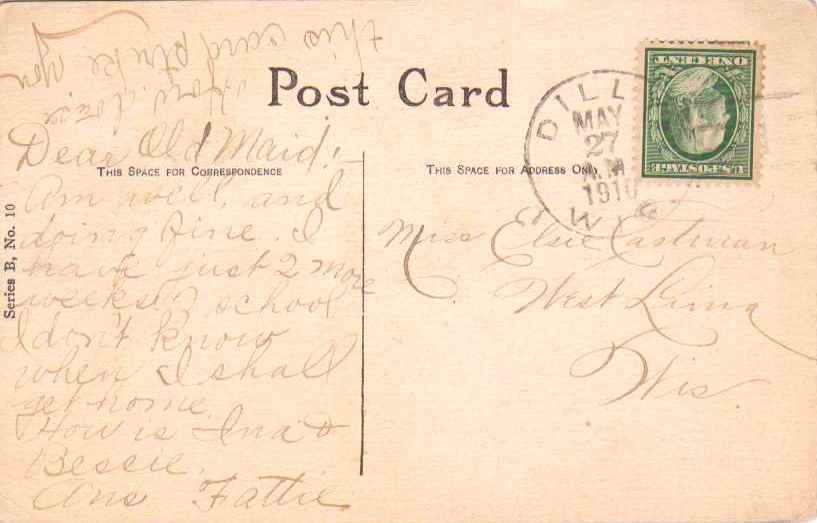 Post Card
THIS SPACE FOR CORRESPONDENCE
THIS SPACE FOR ADDRESS ONLY
Series B, No. 10
Dear Old Maid:
Am well, and
doing fine. I
have just 2 more
weeks school
I don't know
when I shall
get home.
How is Ina &
Bessie.
Ans Fattie
How does
this card strike you
Miss Elsie Eastman
West Lima
Wis.
DILL
MAY
27
A.M
1910
W
U.S. POSTAGE
ONE CENT